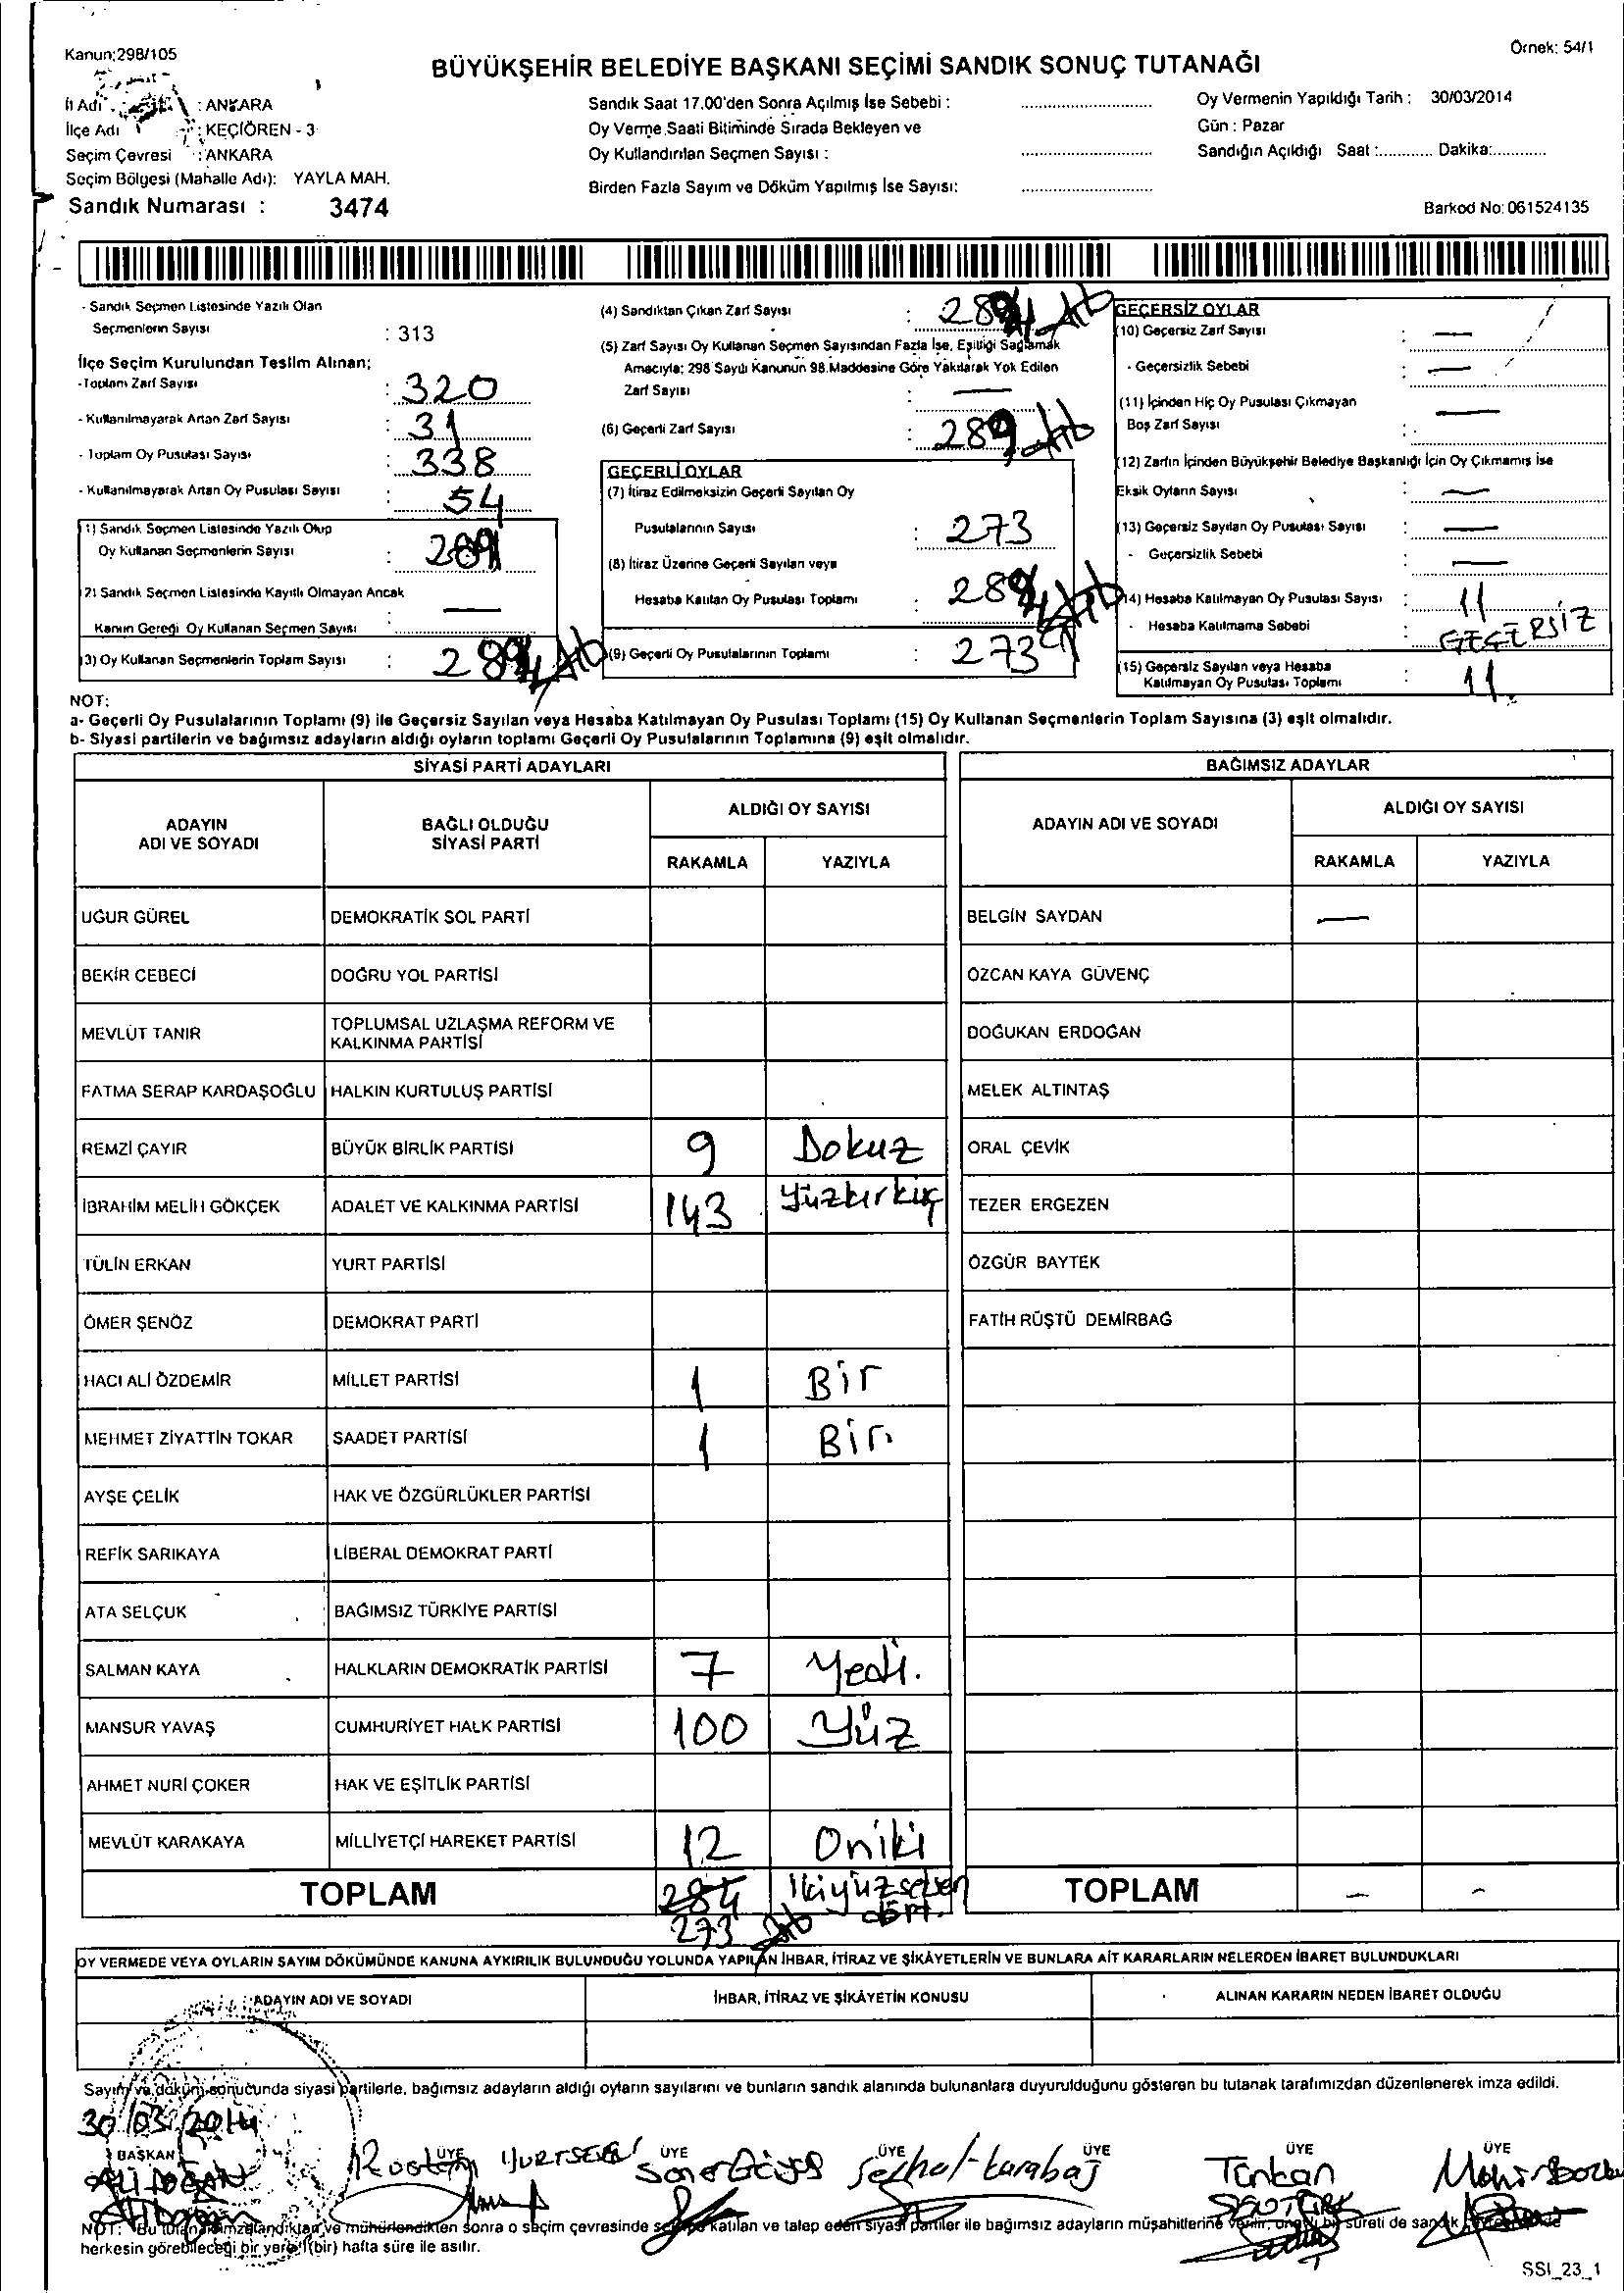 Kanun:298/105
Örnek: 54/1
BÜYÜKŞEHİR BELEDİYE BAŞKANI SEÇİMİ SANDIK SONUÇ TUTANAĞI
İl Adı : ANKARA
İlçe Adı : KEÇİÖREN - 3
Seçim Çevresi : ANKARA
Seçim Bölgesi (Mahalle Adı): YAYLA MAH.
Sandık Numarası : 3474
Sandık Saat 17.00'den Sonra Açılmış İse Sebebi :
Oy Verme Saati Bitiminde Sırada Bekleyen ve
Oy Kullandırılan Seçmen Sayısı :
Birden Fazla Sayım ve Döküm Yapılmış İse Sayısı:
Oy Vermenin Yapıldığı Tarih : 30/03/2014
Gün : Pazar
Sandığın Açıldığı Saat :............ Dakika:............
Barkod No: 061524135
- Sandık Seçmen Listesinde Yazılı Olan
Seçmenlerin Sayısı : 313
İlçe Seçim Kurulundan Teslim Alınan;
- Toplam Zarf Sayısı : 320
- Kullanılmayarak Artan Zarf Sayısı : 31
- Toplam Oy Pusulası Sayısı : 338
- Kullanılmayarak Artan Oy Pusulası Sayısı : 54
(1) Sandık Seçmen Listesinde Yazılı Olup
Oy Kullanan Seçmenlerin Sayısı :
(2) Sandık Seçmen Listesinde Kayıtlı Olmayan Ancak
Kanun Gereği Oy Kullanan Seçmen Sayısı : —
(3) Oy Kullanan Seçmenlerin Toplam Sayısı :
(4) Sandıktan Çıkan Zarf Sayısı :
(5) Zarf Sayısı Oy Kullanan Seçmen Sayısından Fazla İse, Eşitliği Sağlamak
Amacıyla; 298 Sayılı Kanunun 98.Maddesine Göre Yakılarak Yok Edilen
Zarf Sayısı : —
(6) Geçerli Zarf Sayısı : 289
GEÇERLİ OYLAR
(7) İtiraz Edilmeksizin Geçerli Sayılan Oy
Pusulalarının Sayısı : 273
(8) İtiraz Üzerine Geçerli Sayılan veya
Hesaba Katılan Oy Pusulası Toplamı :
(9) Geçerli Oy Pusulalarının Toplamı : 273
GEÇERSİZ OYLAR
(10) Geçersiz Zarf Sayısı : —
- Geçersizlik Sebebi : —
(11) İçinden Hiç Oy Pusulası Çıkmayan
Boş Zarf Sayısı : —
(12) Zarfın İçinden Büyükşehir Belediye Başkanlığı İçin Oy Çıkmamış İse
Eksik Oyların Sayısı : —
(13) Geçersiz Sayılan Oy Pusulası Sayısı : —
- Geçersizlik Sebebi : —
(14) Hesaba Katılmayan Oy Pusulası Sayısı : 11
- Hesaba Katılmama Sebebi : GEÇERSİZ
(15) Geçersiz Sayılan veya Hesaba
Katılmayan Oy Pusulası Toplamı : 11
NOT:
a- Geçerli Oy Pusulalarının Toplamı (9) ile Geçersiz Sayılan veya Hesaba Katılmayan Oy Pusulası Toplamı (15) Oy Kullanan Seçmenlerin Toplam Sayısına (3) eşit olmalıdır.
b- Siyasi partilerin ve bağımsız adayların aldığı oyların toplamı Geçerli Oy Pusulalarının Toplamına (9) eşit olmalıdır.
SİYASİ PARTİ ADAYLARI
ADAYIN ADI VE SOYADI
BAĞLI OLDUĞU SİYASİ PARTİ
ALDIĞI OY SAYISI
RAKAMLA YAZIYLA
UĞUR GÜREL DEMOKRATİK SOL PARTİ
BEKİR CEBECİ DOĞRU YOL PARTİSİ
MEVLÜT TANIR TOPLUMSAL UZLAŞMA REFORM VE KALKINMA PARTİSİ
FATMA SERAP KARDAŞOĞLU HALKIN KURTULUŞ PARTİSİ
REMZİ ÇAYIR BÜYÜK BİRLİK PARTİSİ 9 Dokuz
İBRAHİM MELİH GÖKÇEK ADALET VE KALKINMA PARTİSİ 143 Yüzkırküç
TÜLİN ERKAN YURT PARTİSİ
ÖMER ŞENÖZ DEMOKRAT PARTİ
HACI ALİ ÖZDEMİR MİLLET PARTİSİ 1 Bir
MEHMET ZİYATTİN TOKAR SAADET PARTİSİ 1 Bir
AYŞE ÇELİK HAK VE ÖZGÜRLÜKLER PARTİSİ
REFİK SARIKAYA LİBERAL DEMOKRAT PARTİ
ATA SELÇUK BAĞIMSIZ TÜRKİYE PARTİSİ
SALMAN KAYA HALKLARIN DEMOKRATİK PARTİSİ 7 Yedi.
MANSUR YAVAŞ CUMHURİYET HALK PARTİSİ 100 Yüz
AHMET NURİ ÇOKER HAK VE EŞİTLİK PARTİSİ
MEVLÜT KARAKAYA MİLLİYETÇİ HAREKET PARTİSİ 12 Oniki
TOPLAM 284 İkiyüzseksen dört.
273
BAĞIMSIZ ADAYLAR
ADAYIN ADI VE SOYADI
ALDIĞI OY SAYISI
RAKAMLA YAZIYLA
BELGİN SAYDAN —
ÖZCAN KAYA GÜVENÇ
DOĞUKAN ERDOĞAN
MELEK ALTINTAŞ
ORAL ÇEVİK
TEZER ERGEZEN
ÖZGÜR BAYTEK
FATİH RÜŞTÜ DEMİRBAĞ
TOPLAM – –
OY VERMEDE VEYA OYLARIN SAYIM DÖKÜMÜNDE KANUNA AYKIRILIK BULUNDUĞU YOLUNDA YAPILAN İHBAR, İTİRAZ VE ŞİKÂYETLERİN VE BUNLARA AİT KARARLARIN NELERDEN İBARET BULUNDUKLARI
ADAYIN ADI VE SOYADI
İHBAR, İTİRAZ VE ŞİKÂYETİN KONUSU
ALINAN KARARIN NEDEN İBARET OLDUĞU
Sayım ve döküm sonucunda siyasi partilerle, bağımsız adayların aldığı oyların sayılarını ve bunların sandık alanında bulunanlara duyurulduğunu gösteren bu tutanak tarafımızdan düzenlenerek imza edildi.
30/03/2014
BAŞKAN ÜYE ÜYE ÜYE ÜYE ÜYE ÜYE
ALİ DOĞAN
YURTSEVEN
Serhat Karabağ
NOT: Bu tutanak imzalandıktan ve mühürlendikten sonra o seçim çevresinde seçime katılan ve talep eden siyasi partiler ile bağımsız adayların müşahitlerine verilir, onaylı bir süreti de sandık
herkesin görebileceği bir yere 1(bir) hafta süre ile asılır.
SSI_23_1